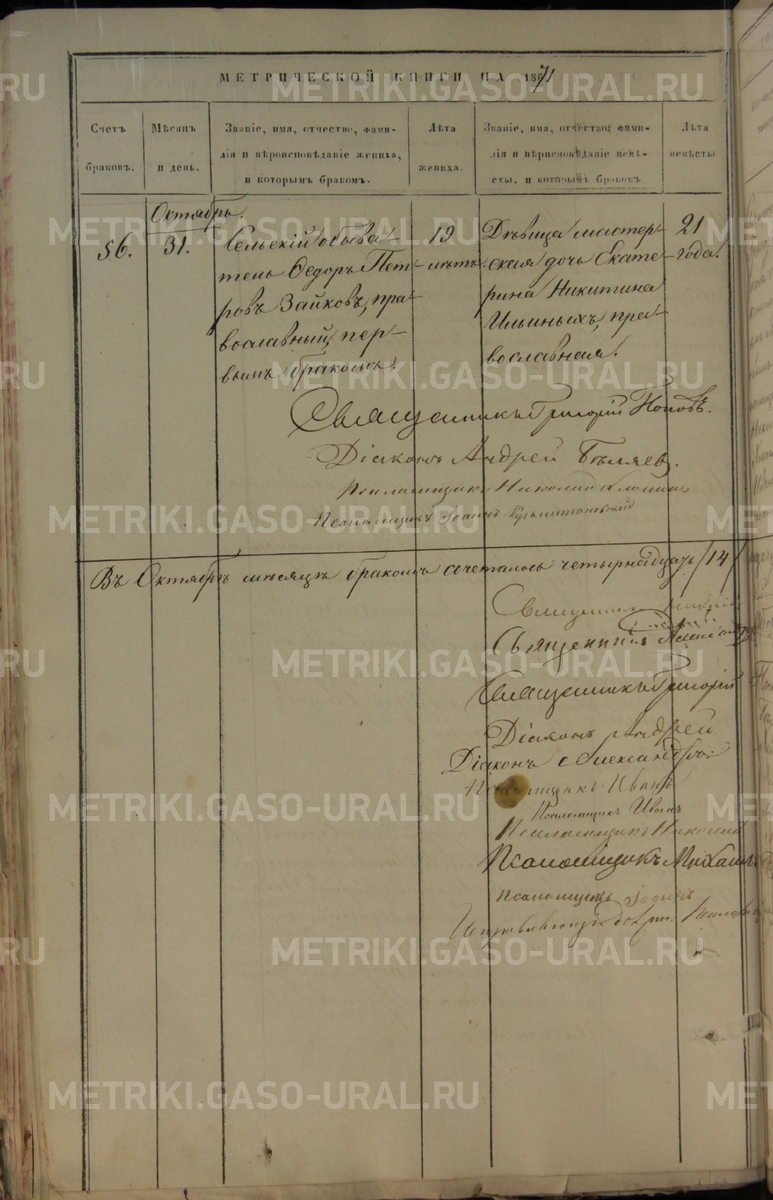 МЕТРИЧЕСКОЙ КНИГИ НА 1871
Счетъ браковъ.
Мѣсяцъ и день.
Званіе, имя, отчество, фами-
лія и вѣроисповѣданіе жениха,
и которымъ бракомъ.
Лѣта жениха.
Званіе, имя, отчество, фами-
лія и вѣроисповѣданіе невѣ-
сты, и которымъ бракомъ
Лѣта невѣсты
Октябрь.
56.
31.
Сельскій обыва-
тель Ѳедоръ Пет-
ровъ Зайковъ, пра-
вославный, пер-
вымъ бракомъ.
19
лѣтъ.
Дѣвица мастер-
ская дочь Екате-
рина Никитина
Ильиныхъ, пра-
вославная.
21
года.
Священникъ Григорій Поповъ.
Діаконъ Андрей Бѣляев.
Псаломщикъ Николай
Псаломщикъ Іоаннъ
Въ Октябрѣ мѣсяцѣ бракомъ сочеталось четырнадцать /14/
Священникъ
Священникъ
Священникъ Григорій
Діаконъ Андрей
Діаконъ Александръ
Псаломщикъ Иванъ
Псаломщикъ Иванъ
Псаломщикъ Николай
Псаломщикъ Михаилъ
Псаломщикъ Іоаннъ
METRIKI.GASO-URAL.RU